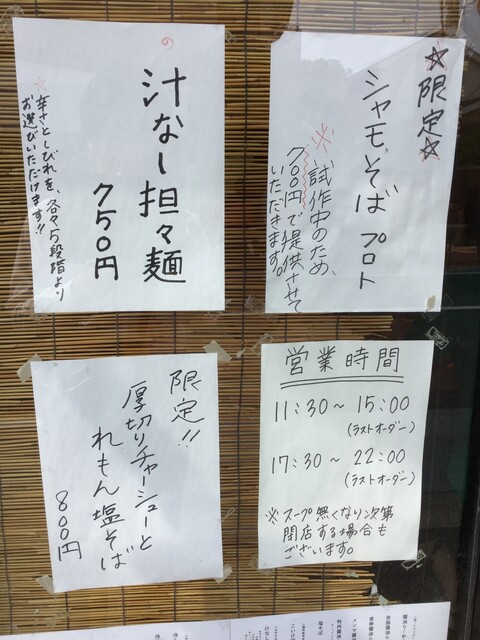 ☆限定☆
シャモそば プロト
※試作中のため、
700円で提供させて
いただきます。
汁なし担々麺
750円
※辛さとしびれを、各々5段階より
お選びいただけます!!
営業時間
11:30~15:00
(ラストオーダー)
17:30~22:00
(ラストオーダー)
※スープ無くなり次第
閉店する場合も
ございます。
限定!!
厚切りチャーシューと
れもん塩そば
800円